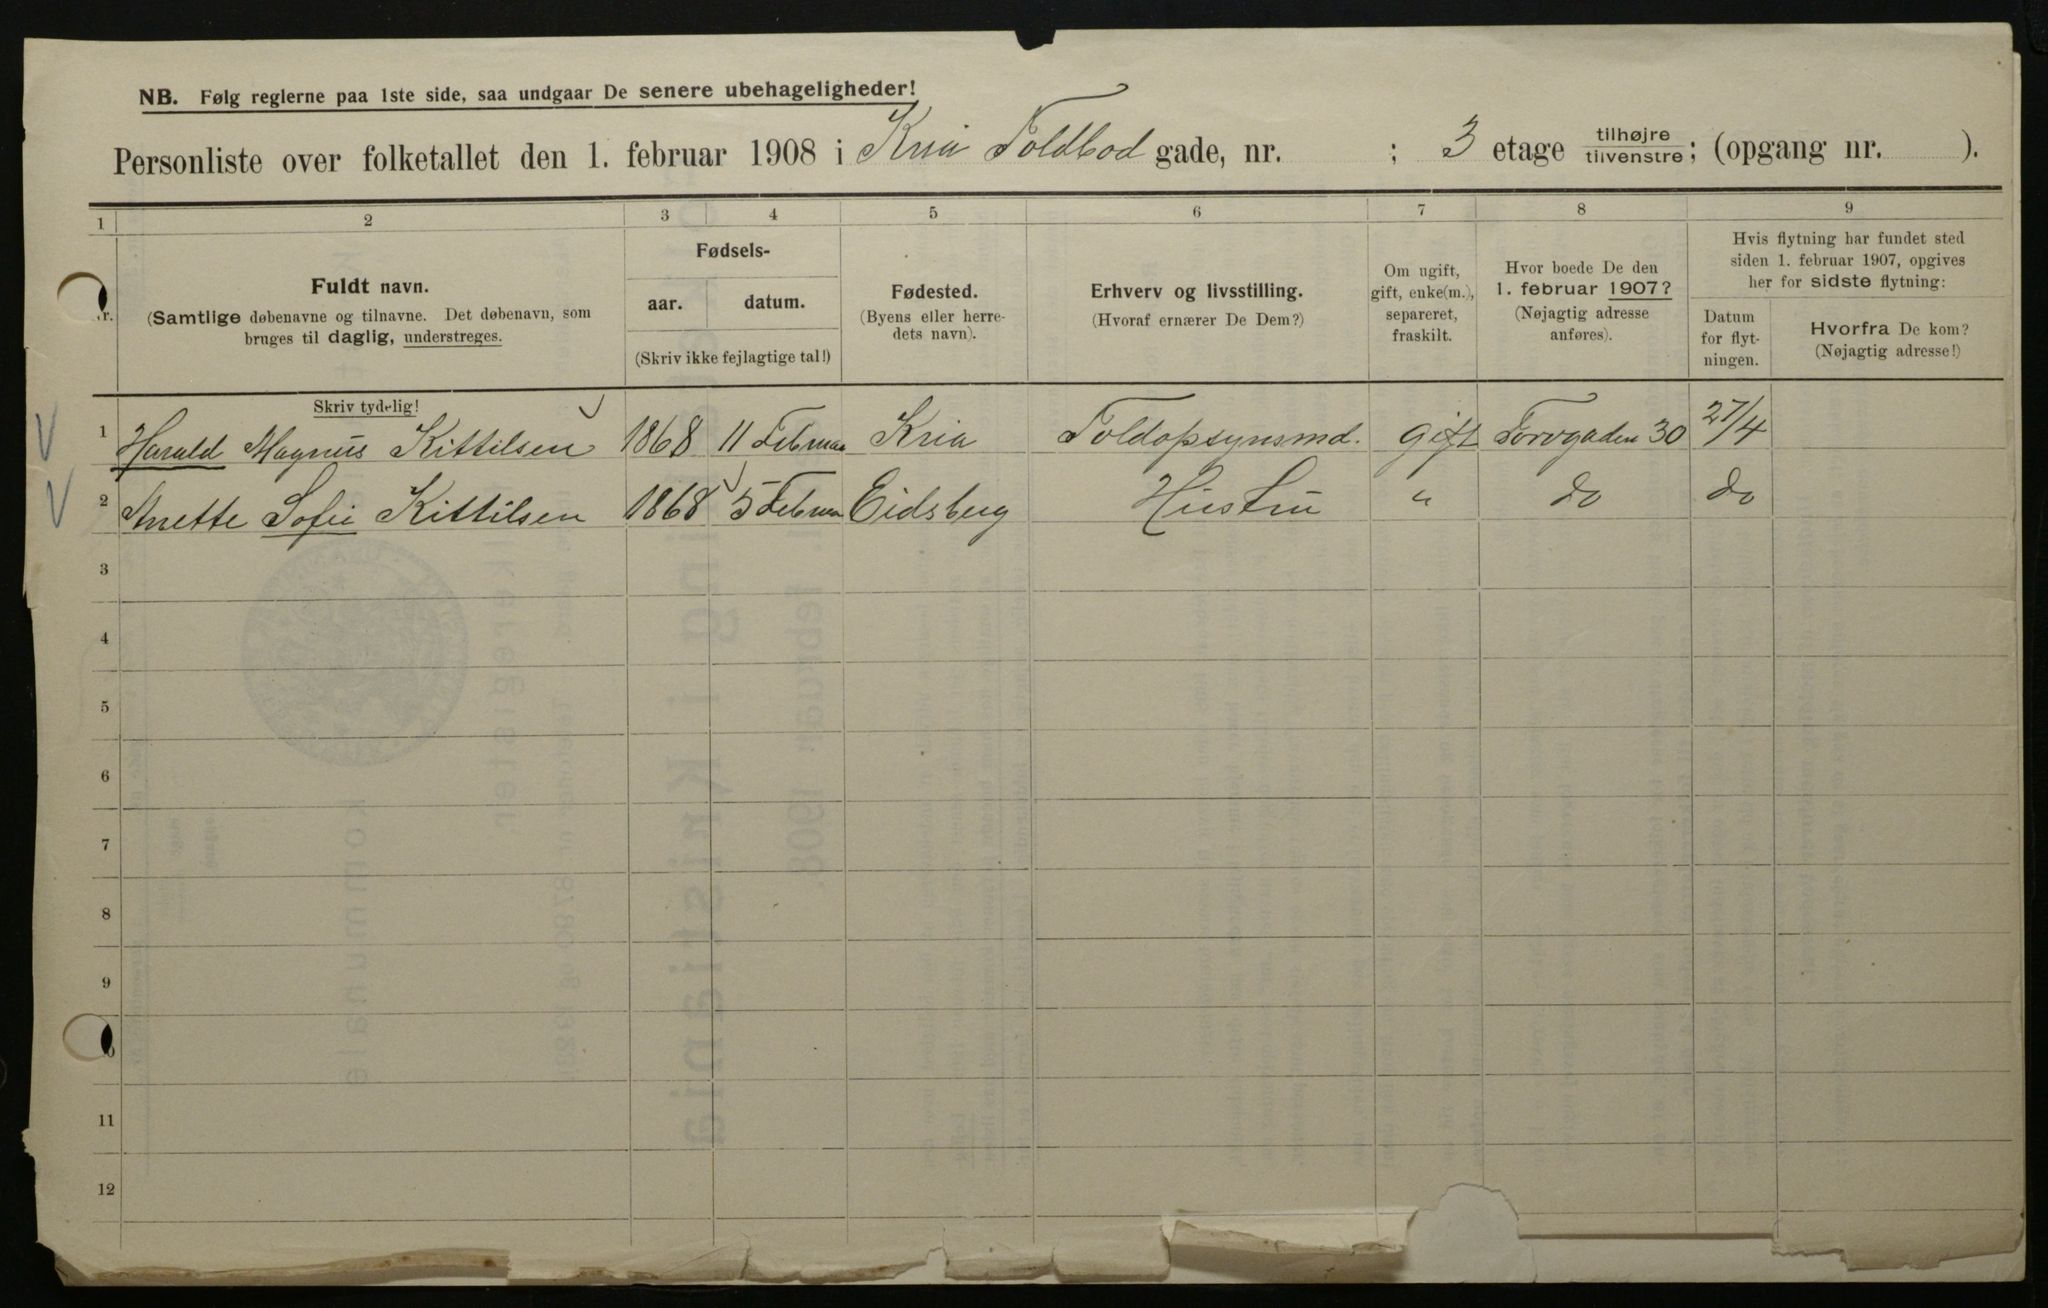 NB. Følg reglerne paa 1ste side, saa undgaar De senere ubehageligheder!
Personliste over folketallet den 1. februar 1908 i Kria Toldbod gade, nr. ; 3 etage tilhøjre/tilvenstre; (opgang nr. ).
1 2 3 4 5 6 7 8 9
Nr.
Fuldt navn.
(Samtlige døbenavne og tilnavne. Det døbenavn, som
bruges til daglig, understreges.
Skriv tydelig!
Fødsels-
aar. datum.
(Skriv ikke fejlagtige tal!)
Fødested.
(Byens eller herre-
dets navn).
Erhverv og livsstilling.
(Hvoraf ernærer De Dem?)
Om ugift,
gift, enke(m.),
separeret,
fraskilt.
Hvor boede De den
1. februar 1907?
(Nøjagtig adresse
anføres).
Hvis flytning har fundet sted
siden 1. februar 1907, opgives
her for sidste flytning:
Datum
for flyt-
ningen.
Hvorfra De kom?
(Nøjagtig adresse!)
1 Harald Magnus Kittilsen 1868 11 Februar Kria Toldopsynsmd. gift Torvgaden 30 27/4
2 Anette Sofie Kittilsen 1868 5 Februar Eidsberg Hustru " do do
3
4
5
6
7
8
9
10
11
12